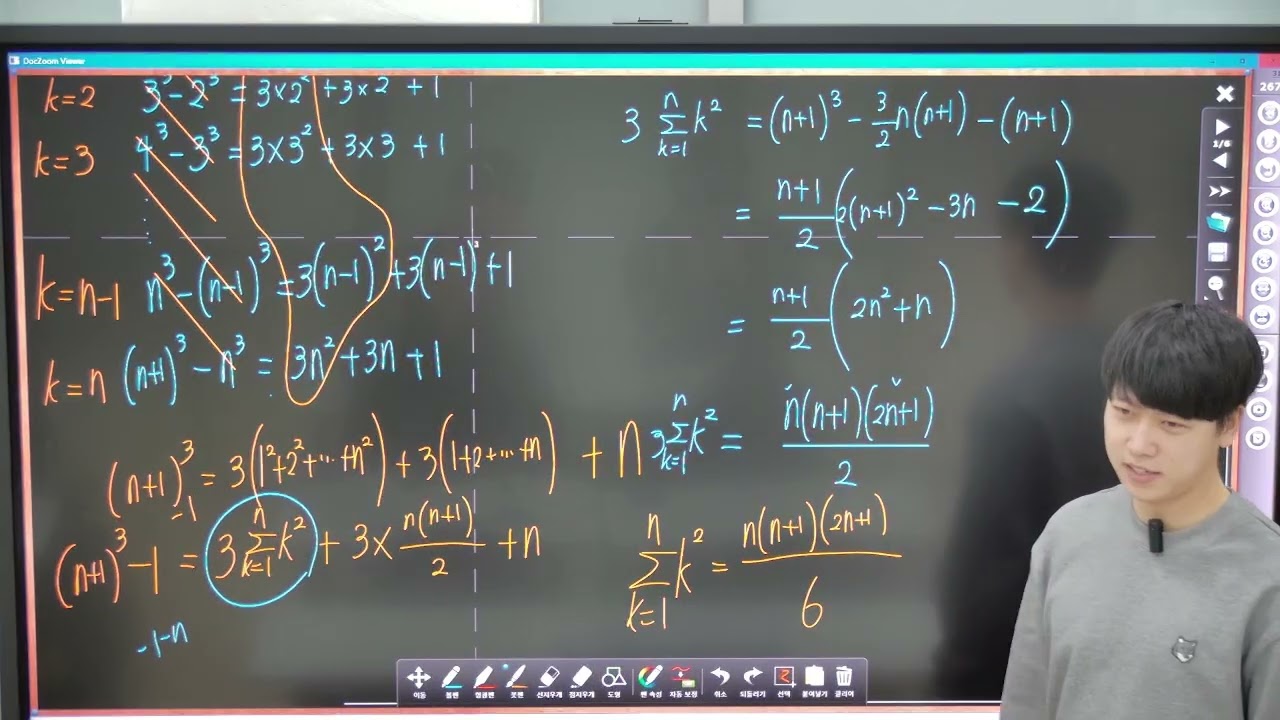 DocZoom Viewer
k=2 3³-2³ = 3×2²+3×2 +1
k=3 4³-3³ = 3×3²+3×3 +1
⋮
k=n-1 n³-(n-1)³=3(n-1)²+3(n-1)+1
k=n (n+1)³-n³= 3n²+3n+1
(n+1)³-1 = 3(1²+2²+⋯+n²)+3(1+2+⋯+n) + n
(n+1)³-1 = 3∑_{k=1}^{n}k² + 3× n(n+1)/2 +n
-1-n
3 ∑_{k=1}^{n} k² = (n+1)³ - 3/2 n(n+1) - (n+1)
= (n+1)/2 (2(n+1)² -3n -2)
= (n+1)/2 (2n²+n)
3∑_{k=1}^{n}k² = n(n+1)(2n+1)/2
∑_{k=1}^{n}k² = n(n+1)(2n+1)/6
267
1/6
이동 볼펜 형광펜 붓펜 선지우개 점지우개 도형 펜 속성 자동 보정 취소 되돌리기 선택 붙여넣기 클리어